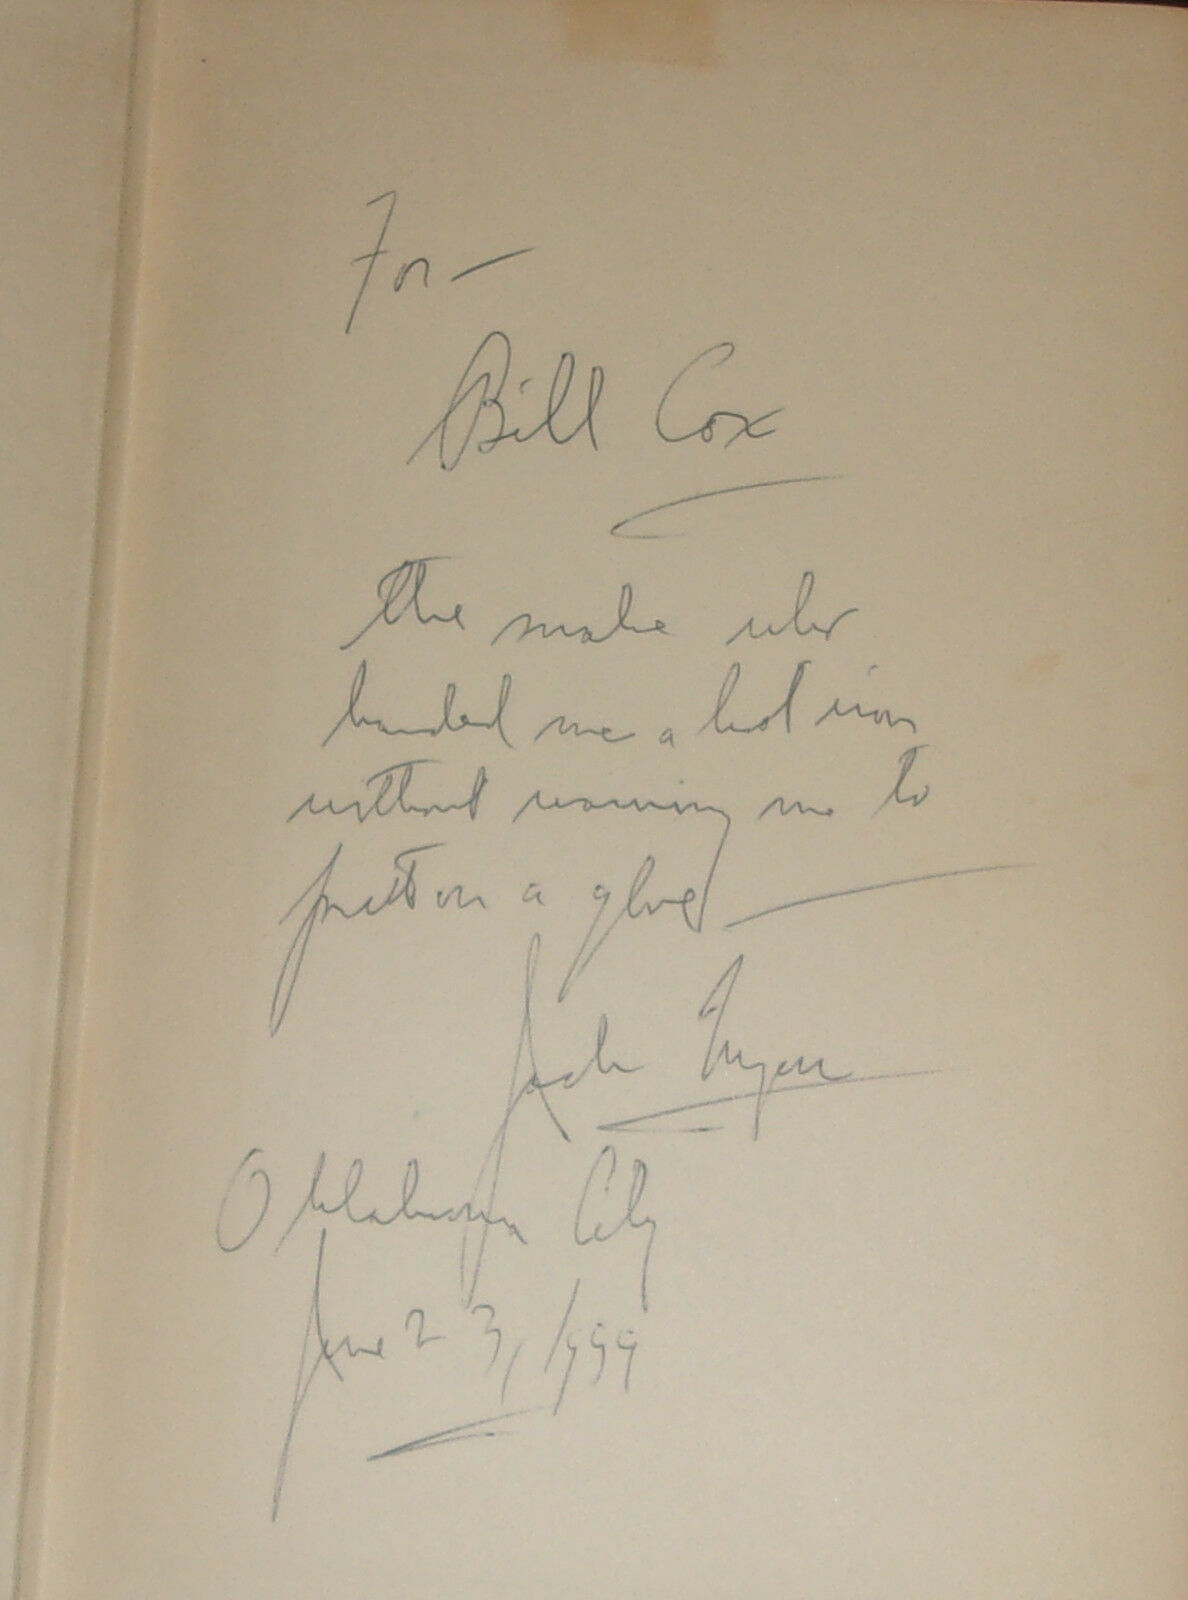 For —
Bill Cox
the snake who
handed me a hot iron
without warning me to
put on a glove —
Jack
Oklahoma City
June 23, 1999